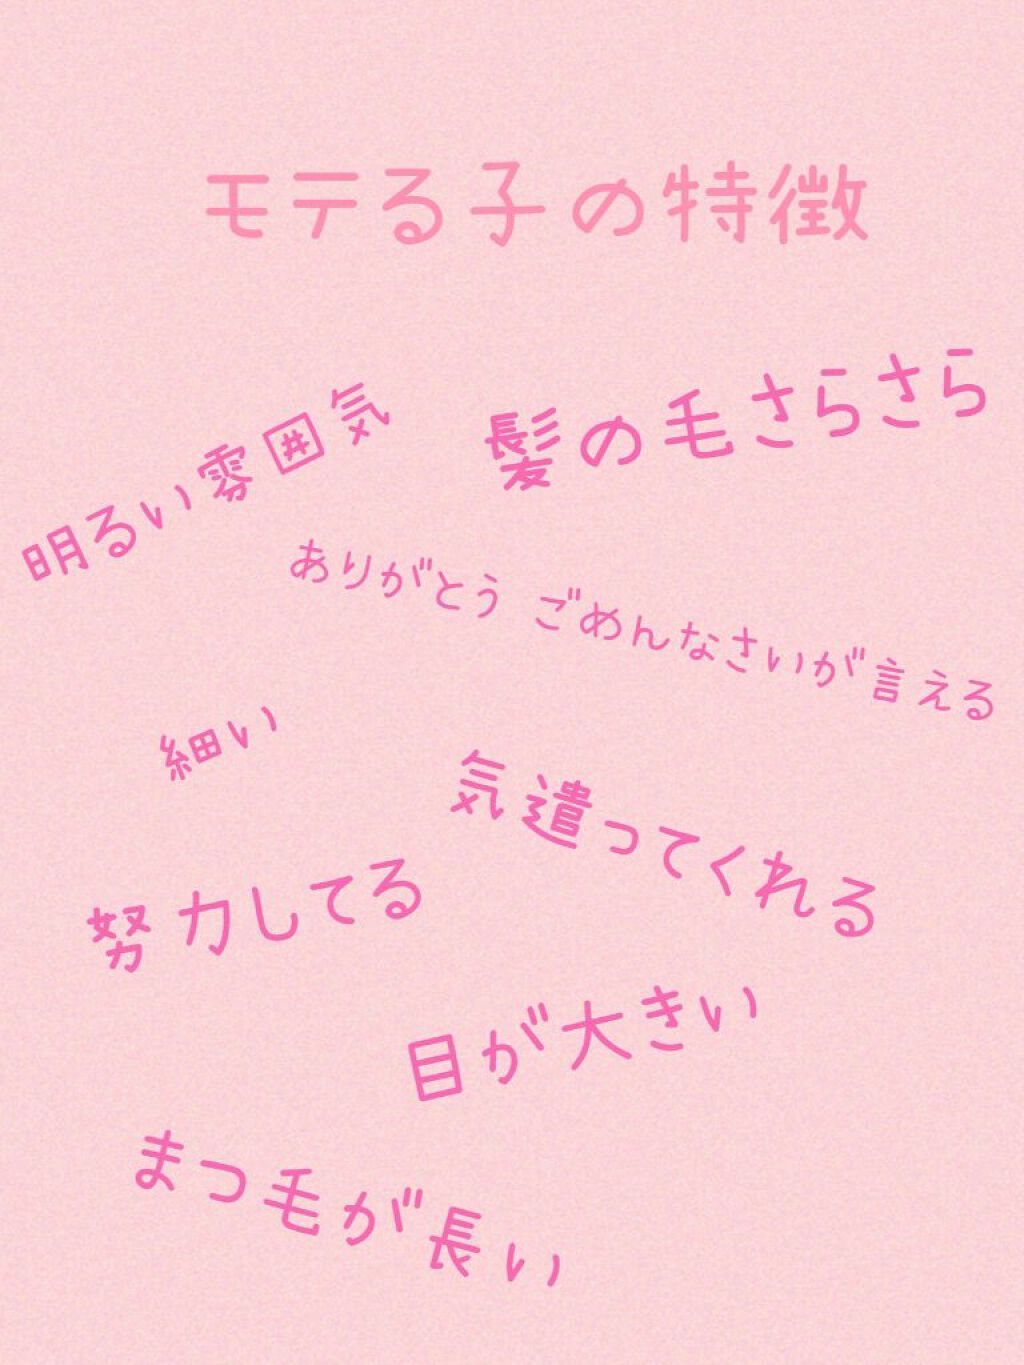 モテる子の特徴
髪の毛さらさら
明るい雰囲気
ありがとう ごめんなさいが言える
細い
気遣ってくれる
努力してる
目が大きい
まつ毛が長い